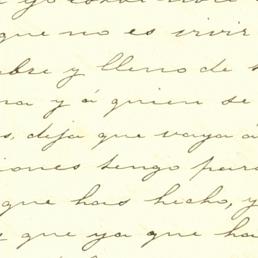 que no es vivir
y lleno de
na y á quien se
s, deja que vaya á
iones tengo para
que has hecho, y
s que ya que ha